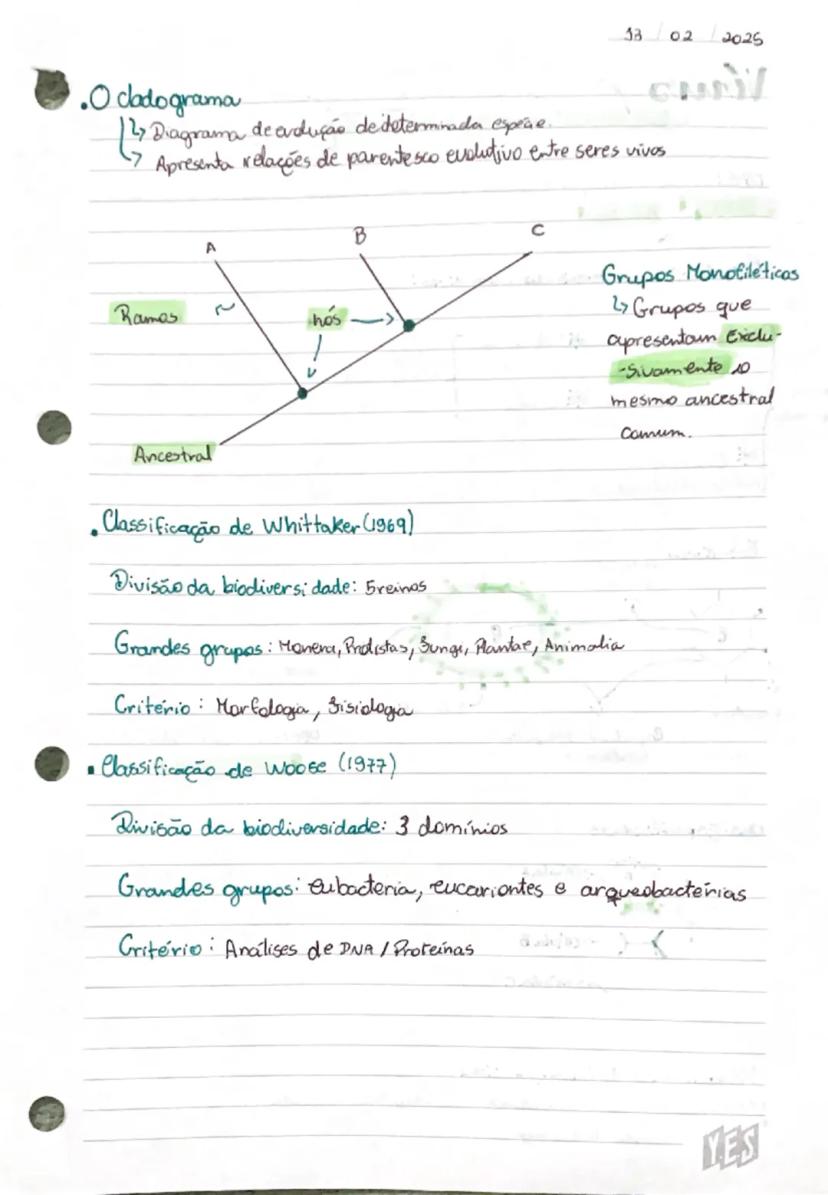 13 / 02 / 2025
. O cladograma
↳ Diagrama de evolução de determinada espécie.
↳ Apresenta relações de parentesco evolutivo entre seres vivos
A B C
Ramos
nós
Ancestral
Grupos Monofiléticos
↳ Grupos que
apresentam Exclu-
-sivamente o
mesmo ancestral
comum.
. Classificação de Whittaker (1969)
Divisão da biodiversidade: 5 reinos
Grandes grupos: Monera, Protistas, Fungi, Plantae, Animalia
Critério: Morfologia, Fisiologia
. Classificação de Woose (1977)
Divisão da biodiversidade: 3 domínios
Grandes grupos: eubacteria, eucariontes e arqueobactérias
Critério: Análises de DNA / Proteínas
YES